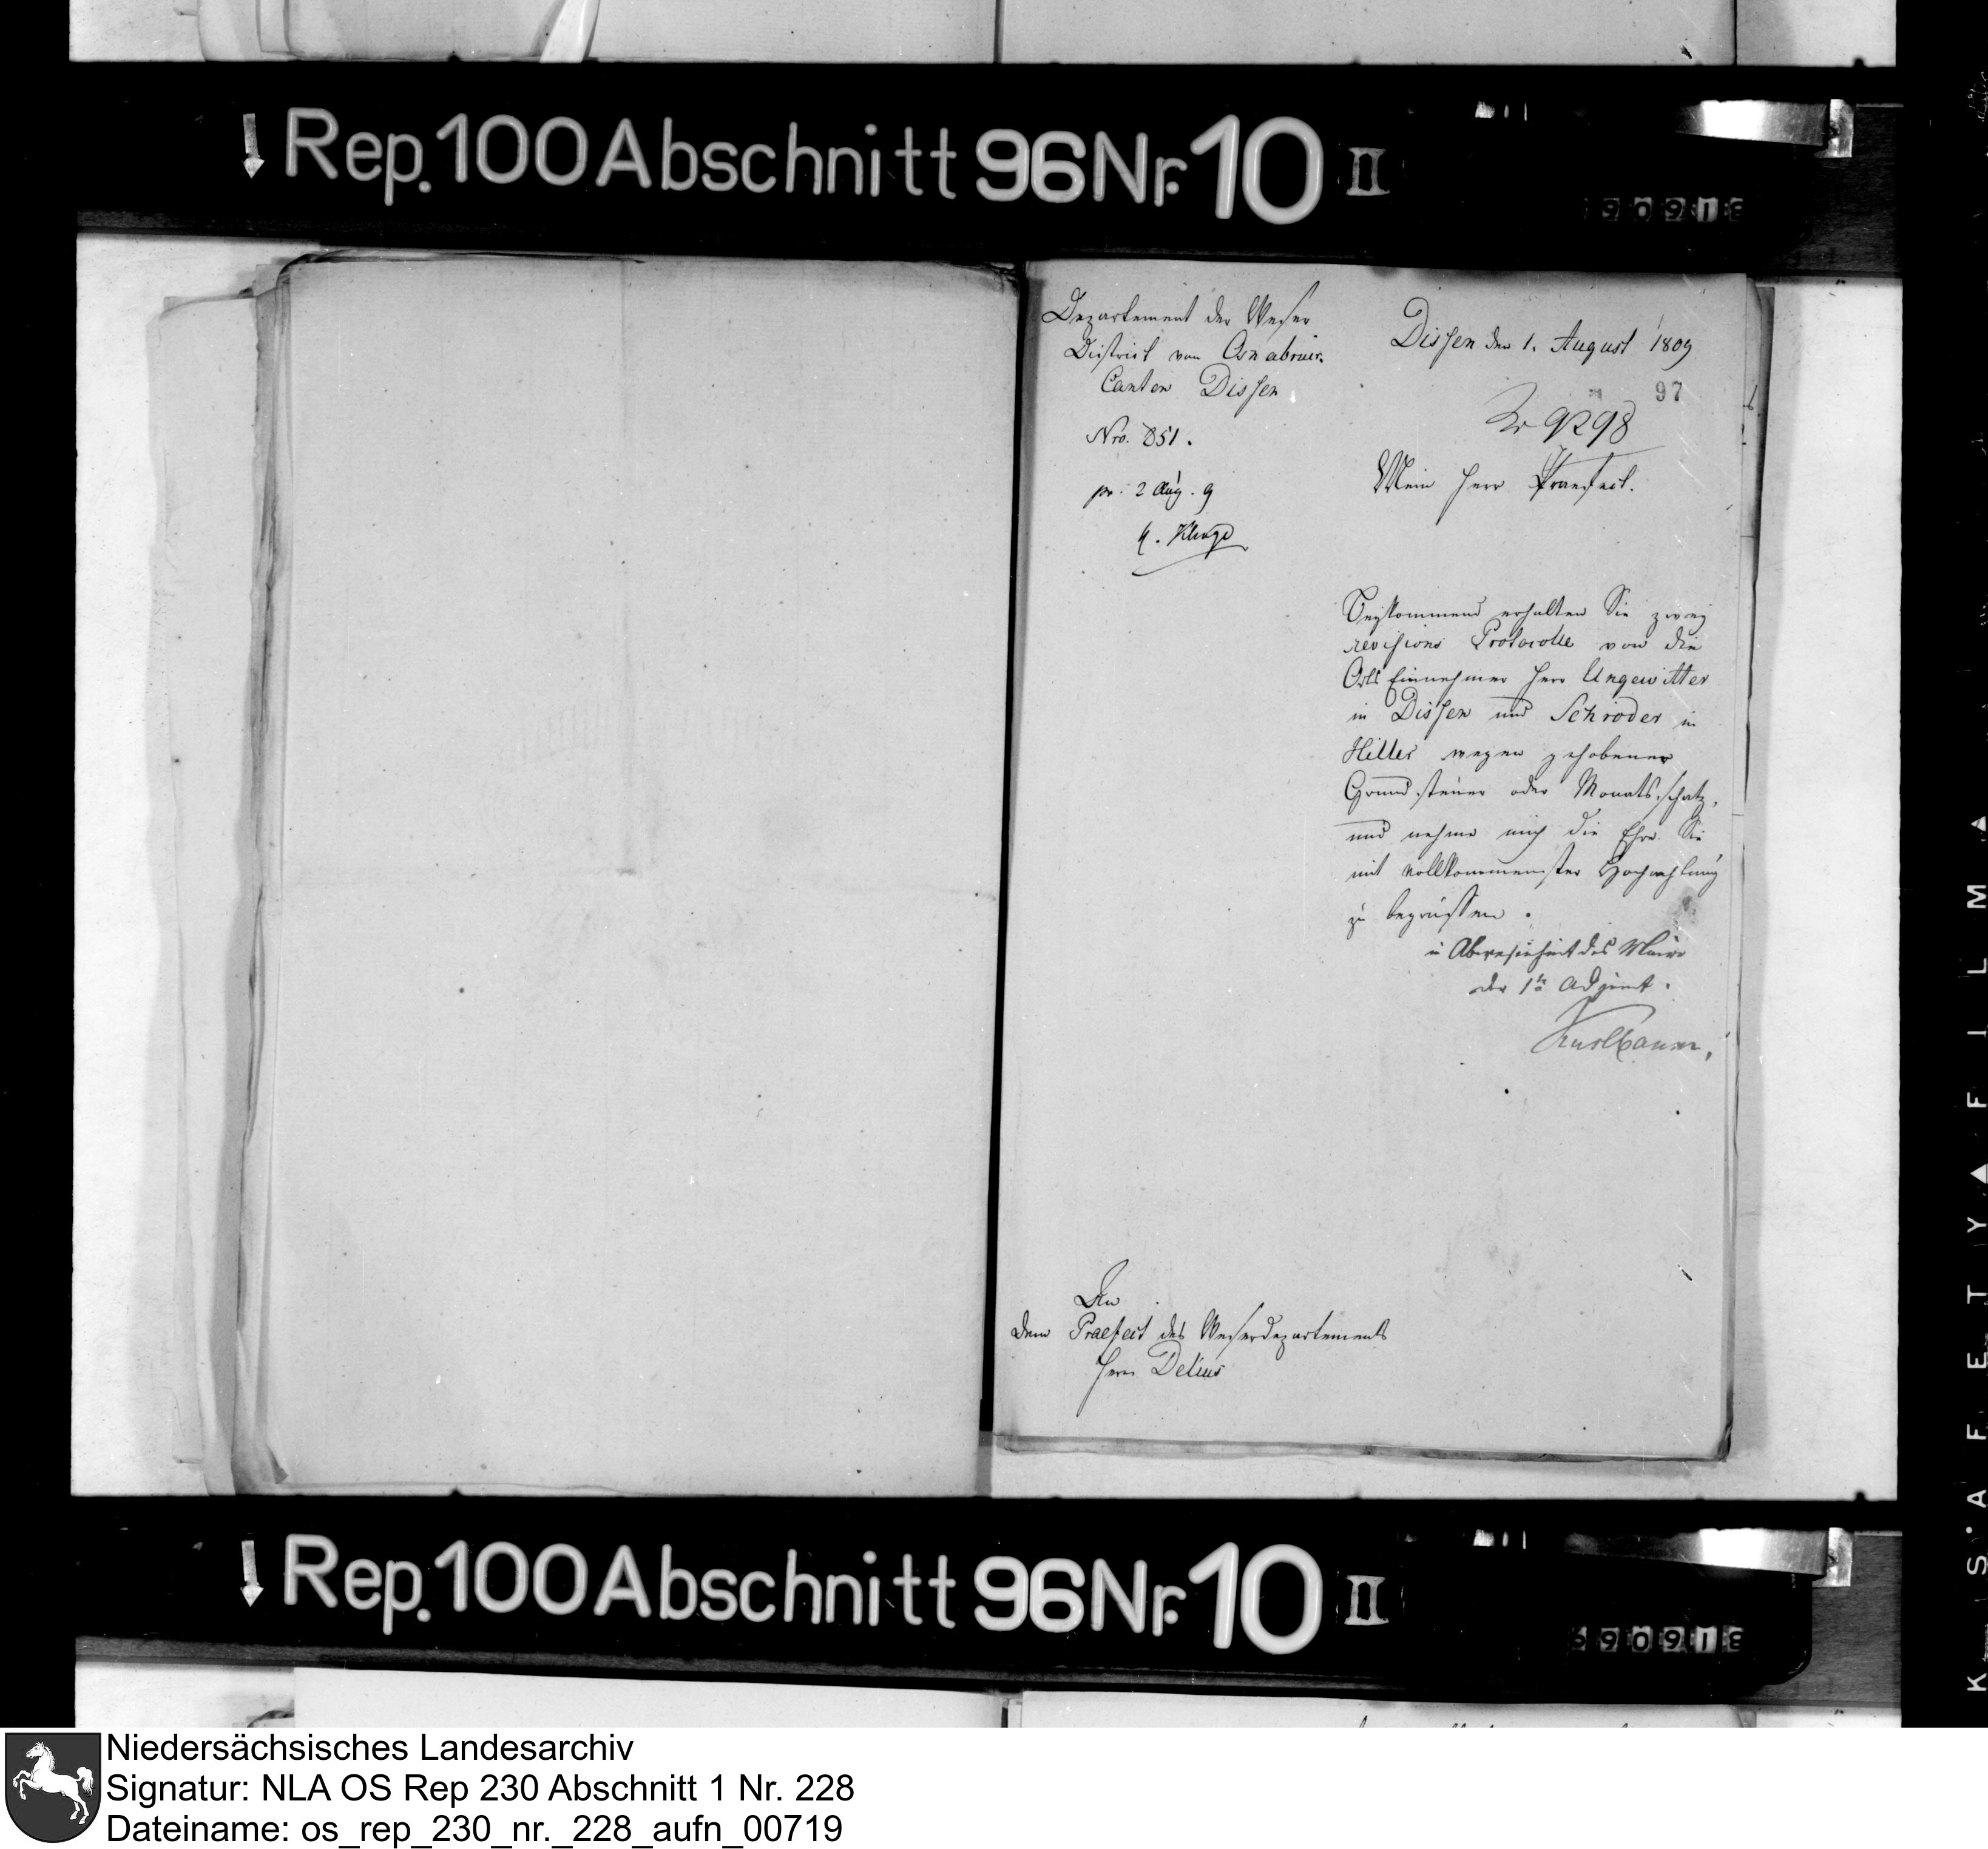 Rep. 100 Abschnitt 96 Nr. 10 II
Departement der Weser
District von Osnabrück
Canton Dissen
Nro. 851.
pr. 2 Aug. 9
Dissen den 1. August 1809
97
9298
Mein Herr Praefect.
Beykommend erhalten Sie zwey
revisions Protocolle von die
Orts Einnehmer Herr Ungewitter
in Dissen und Schröder in
Hilter wegen gehobener
Grundsteuer oder Monatsschatz,
und nehme mich die Ehre Sie
mit vollkommenster Hochachtung
zu begrüssen.
in Abwesenheit des Maire
der 1te Adjoint.
An
dem Praefect des Weserdepartements
Herrn Delius
Rep. 100 Abschnitt 96 Nr. 10 II
K · SAFETY ▲ FILM ▲
Niedersächsisches Landesarchiv
Signatur: NLA OS Rep 230 Abschnitt 1 Nr. 228
Dateiname: os_rep_230_nr._228_aufn_00719